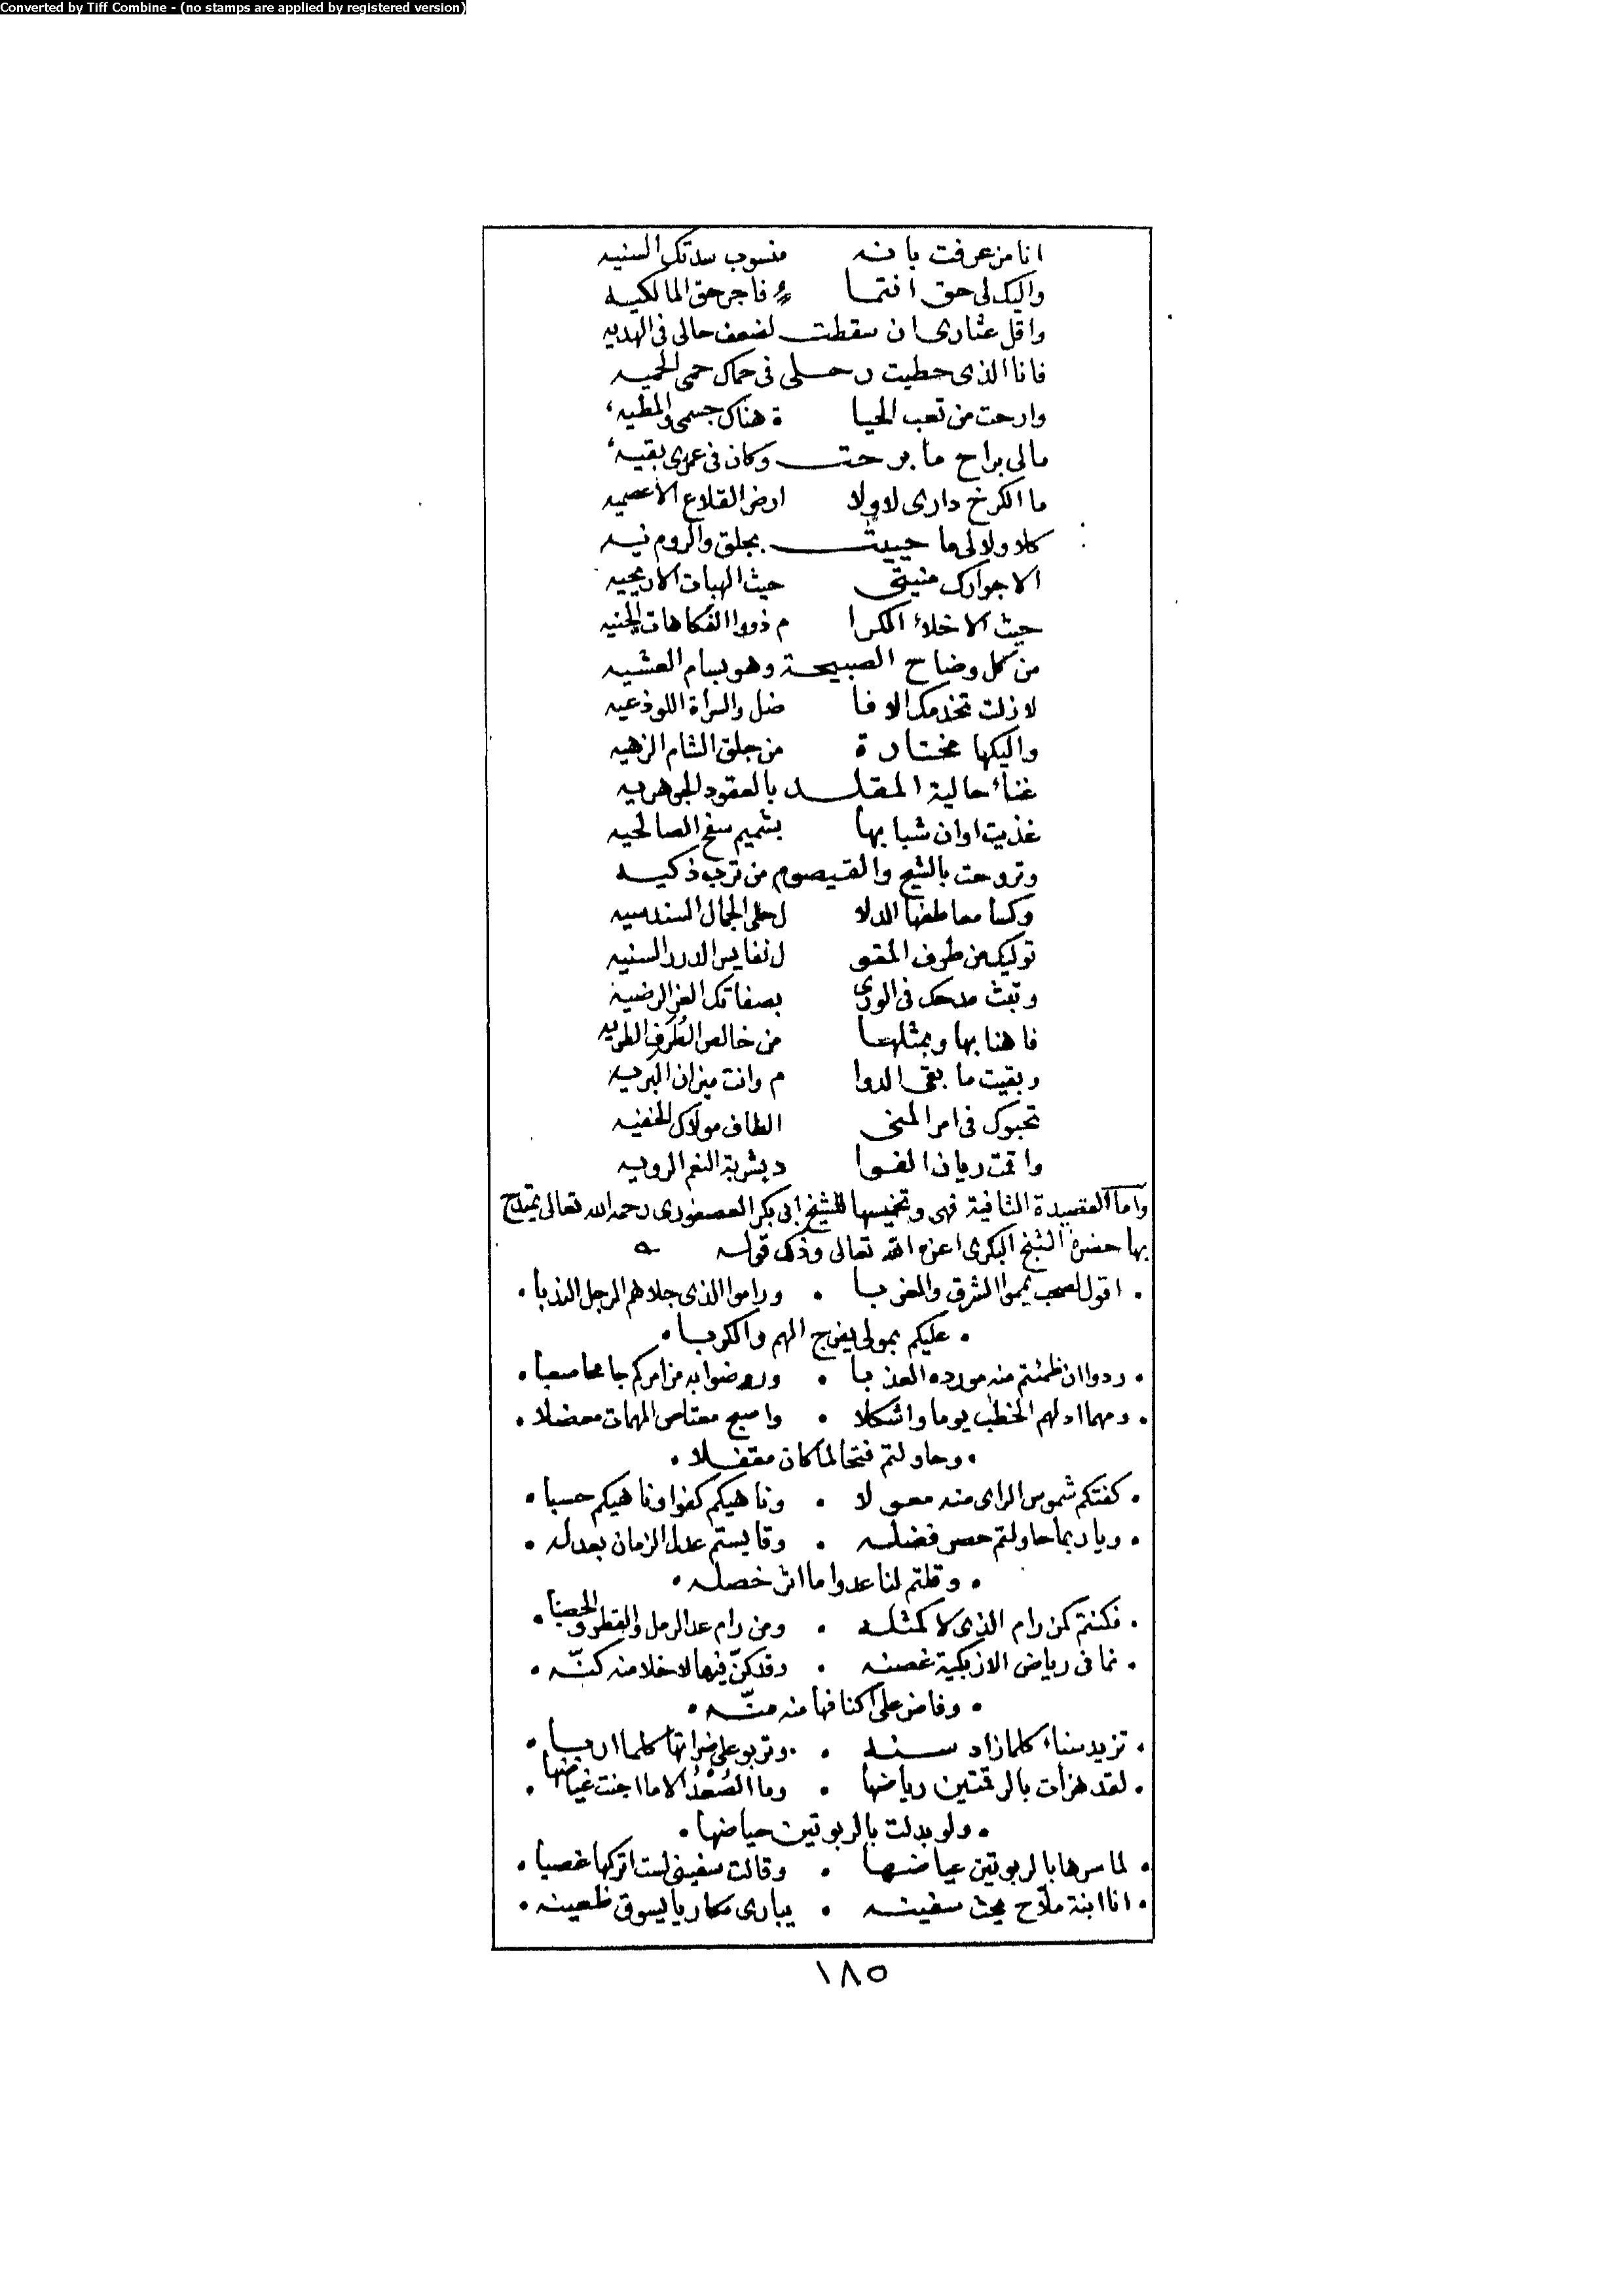 Converted by Tiff Combine - (no stamps are applied by registered version)
انا من عرفت بانه منسوب سدتك السنيه
واليك لى حق انتما ء فاجر حق المالكيه
واقل عثارى ان سقطت لضعف حالى فى الهديه
فانا الذى حطيت رحلى فى حماك حمى الحميه
وارحت من تعب الحيا ة هناك جسمى والمطيه
مالى براح ما برحت وكان فى عمرى بقيه
ما الكرخ دارى لا ولا ارض القلاع الاعصميه
كلا ولا لى ما حييت بجلق والروم نيه
الا جوارك منيتى حيث الهبات الاريحيه
حيث الاخلاء الكرا م ذووا الفكاهات الجنيه
من كل وضاح الصبيحة وهو بسام العشيه
لا زلت تخدمك الافا ضل والسراة اللوذعيه
واليكها مختارة من جلق الشام الزهيه
غناء حالية المقلد بالعقود الجوهريه
غذيت اوان شبابها بشميم سفح الصالحيه
وتروحت بالشيح والقيصوم من ترب ذكيه
وكسا معاطفها الدلا ل حلى الجمال السندسيه
توليك من طرف المقو ل نفايس الدرر السنيه
وتبث مدحك فى الورى بصفاتك الغر الرضية
فاهنا بها وبمثلها من خالص الطرف الطريه
وبقيت ما بقى الدوا م وانت ميزان البريه
تحبوك فى امر المنى الطاف مولاك الخفيه
واقمت ريان الفوا د بشربة النعم الرويه
واما القصيدة الثانية فهى وتخميسها للشيخ ابى بكر العصفورى رحمه الله تعالى يمتدح
بها حضرة الشيخ البكرى اعزه الله تعالى وذلك قوله
. اقول لصحب يمموا الشرق والغربا . وراموا الذى جلاهم الرجل الندبا .
. عليكم بمولى يفرج الهم والكربا .
. ردوا ان ظمئتم منه مورده العذبا . وروضوا به من امركم جامحا صعبا .
. ومهما ادلهم الخطب يوما واشكلا . واصبح معتاص المهمات معضلا .
. وحاولتم فتحا لما كان مقفلا .
. كفتكم شموس الراى منه معولا . وناهيكم كفوا وناهيكم حسبا .
. ويا ربما حاولتم حصر فضله . وقايستم عدل الزمان بعدله .
. وقلتم لنا عدوا ماثر خصله .
. فكنتم كمن رام الذى لا كمثله . ومن رام عد الرمل والقطر والحصبا .
. نما فى رياض الازبكية غصنه . وقد كنّ فيها لا خلا منه كنّه .
. وفاض على اكنافها منه منّه .
. تزيد سناء كلما زاد سنه . وتربو على ضراتها كلما اربا .
. لقد هزات بالرقمتين رياضها . وما الصُغْدُ الا ما اجنت غياضها .
. ولو بدلت بالربوتين حياضها .
. لما سرها بالربوتين عياضها . وقالت سفينى لست اتركها غصبا .
. انا ابنة ملّاح يحث سفينه . يبارى مكاريا يسوق ظعينه .
١٨٥